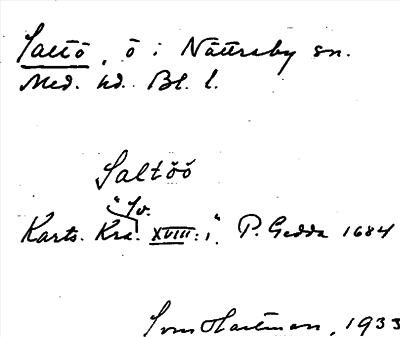 Saltö, ö i Nättraby sn.
Med. hd. Bl. l.
Saltöö
"Sv.
Karts. Kra. XVIII:1" P. Gedda 1684
Sven Hartman, 1933